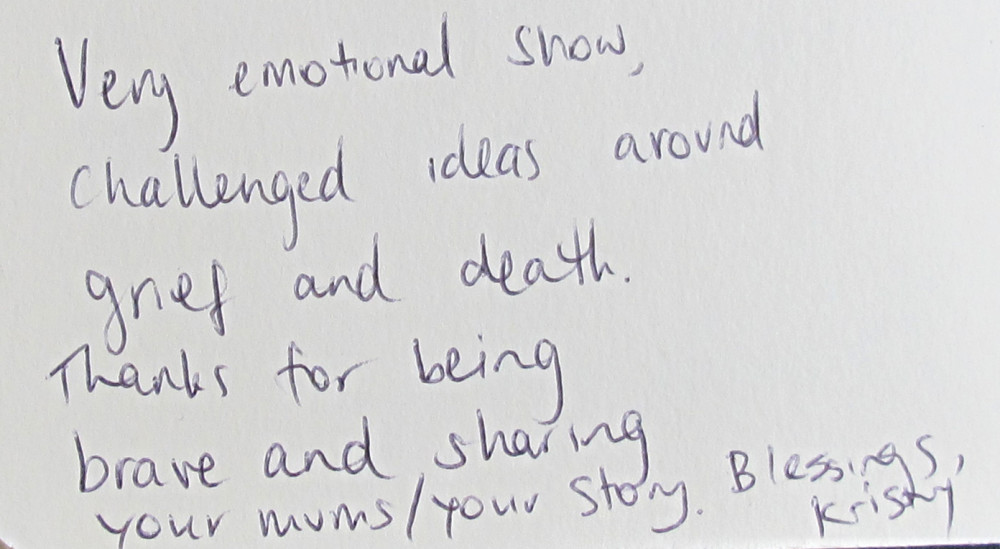 Very emotional show,
challenged ideas around
grief and death.
Thanks for being
brave and sharing
your mums/your story. Blessings,
Kristy